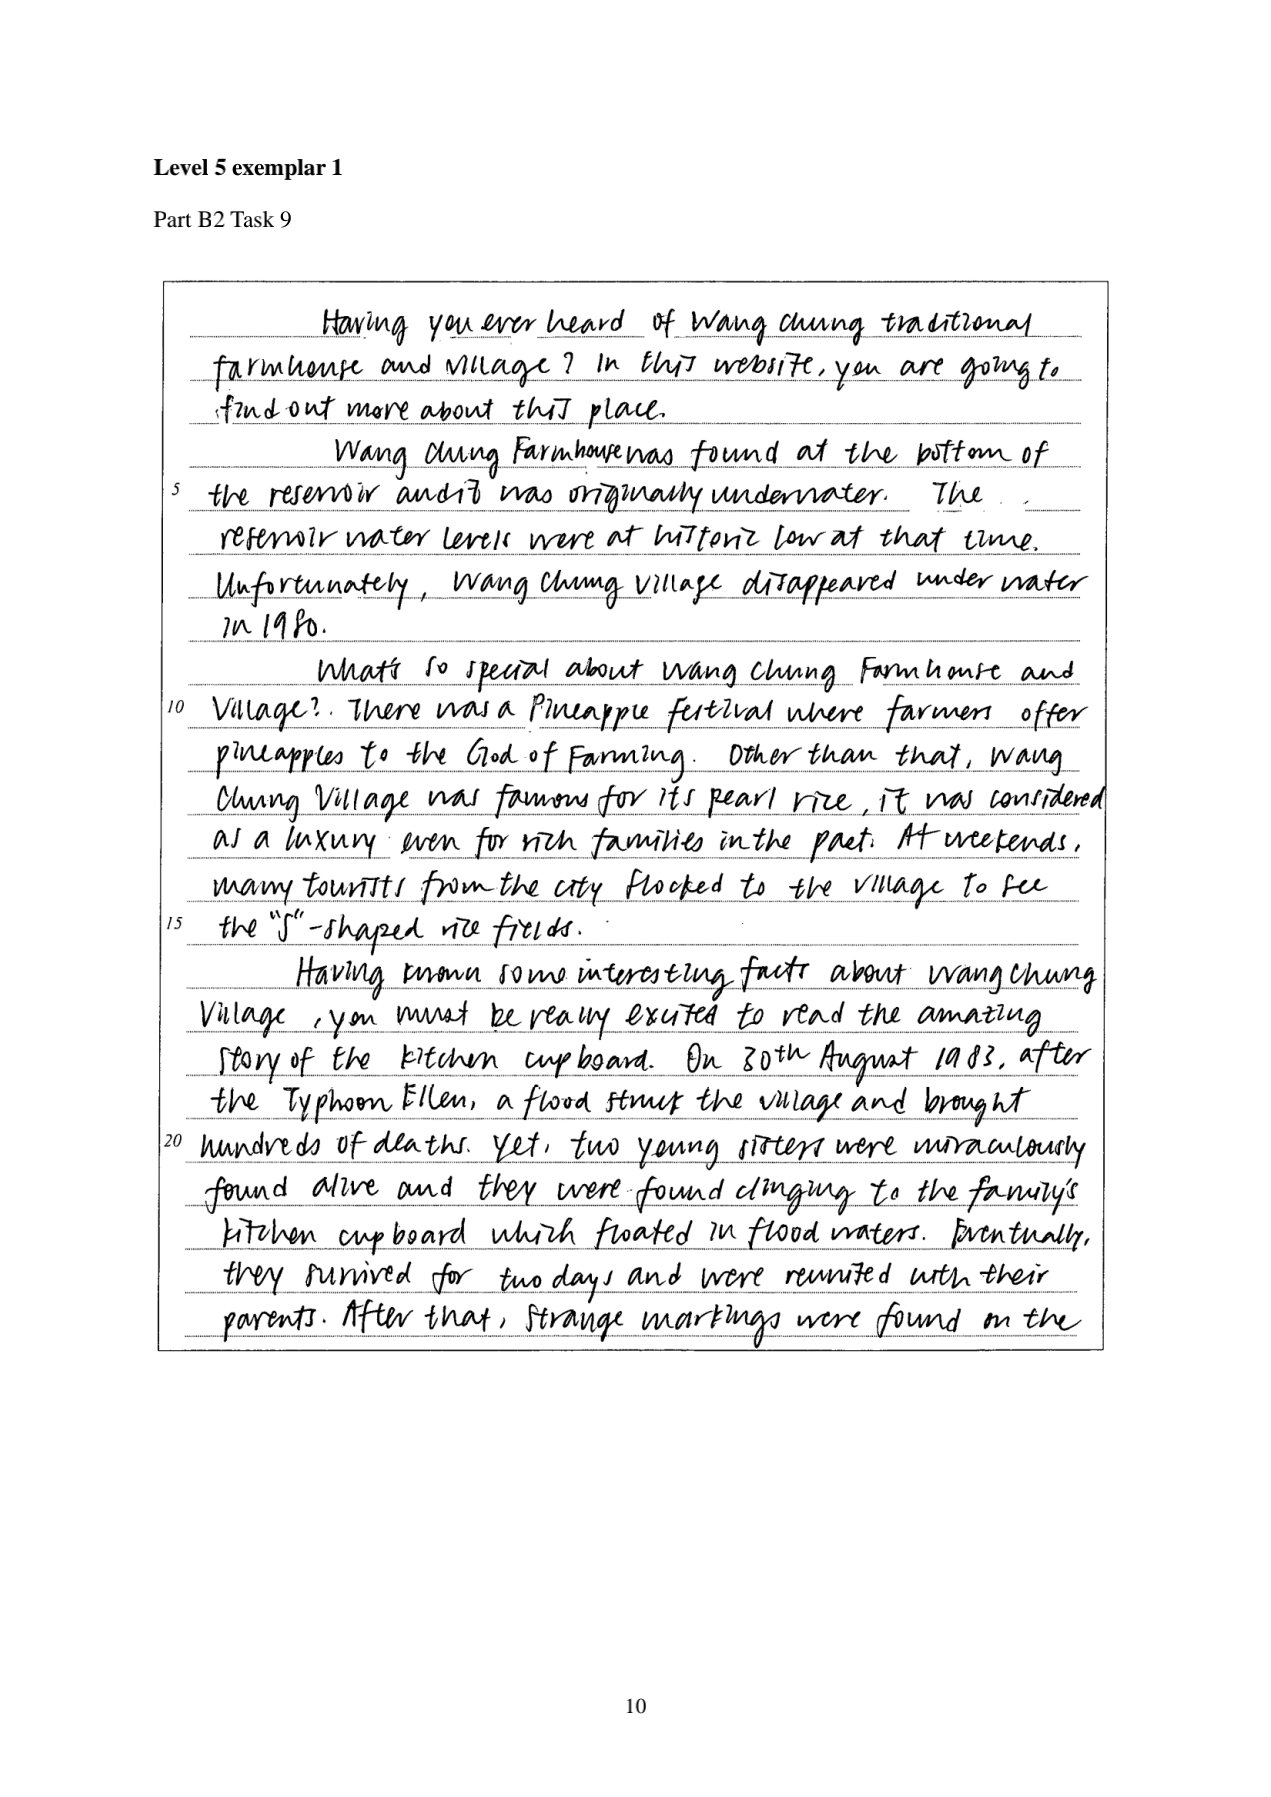 Level 5 exemplar 1
Part B2 Task 9
Having you ever heard of Wang Chung traditional
farmhouse and village? In this website, you are going to
find out more about this place.
Wang Chung Farmhouse was found at the bottom of
5 the reservoir and it was originally underwater. The
reservoir water levels were at historic low at that time.
Unfortunately, Wang Chung Village disappeared under water
in 1980.
What's so special about Wang Chung Farmhouse and
10 Village?. There was a Pineapple festival where farmers offer
pineapples to the God of Farming. Other than that, Wang
Chung Village was famous for its pearl rice, it was considered
as a luxury even for rich families in the past. At weekends,
many tourists from the city flocked to the village to see
15 the "S"-shaped rice fields.
Having known some interesting facts about Wang Chung
Village, you must be really excited to read the amazing
story of the kitchen cupboard. On 30th August 1983, after
the Typhoon Ellen, a flood struk the village and brought
20 hundreds of deaths. Yet, two young sisters were miraculously
found alive and they were found clinging to the family's
kitchen cupboard which floated in flood waters. Eventually,
they survived for two days and were reunited with their
parents. After that, strange markings were found on the
10